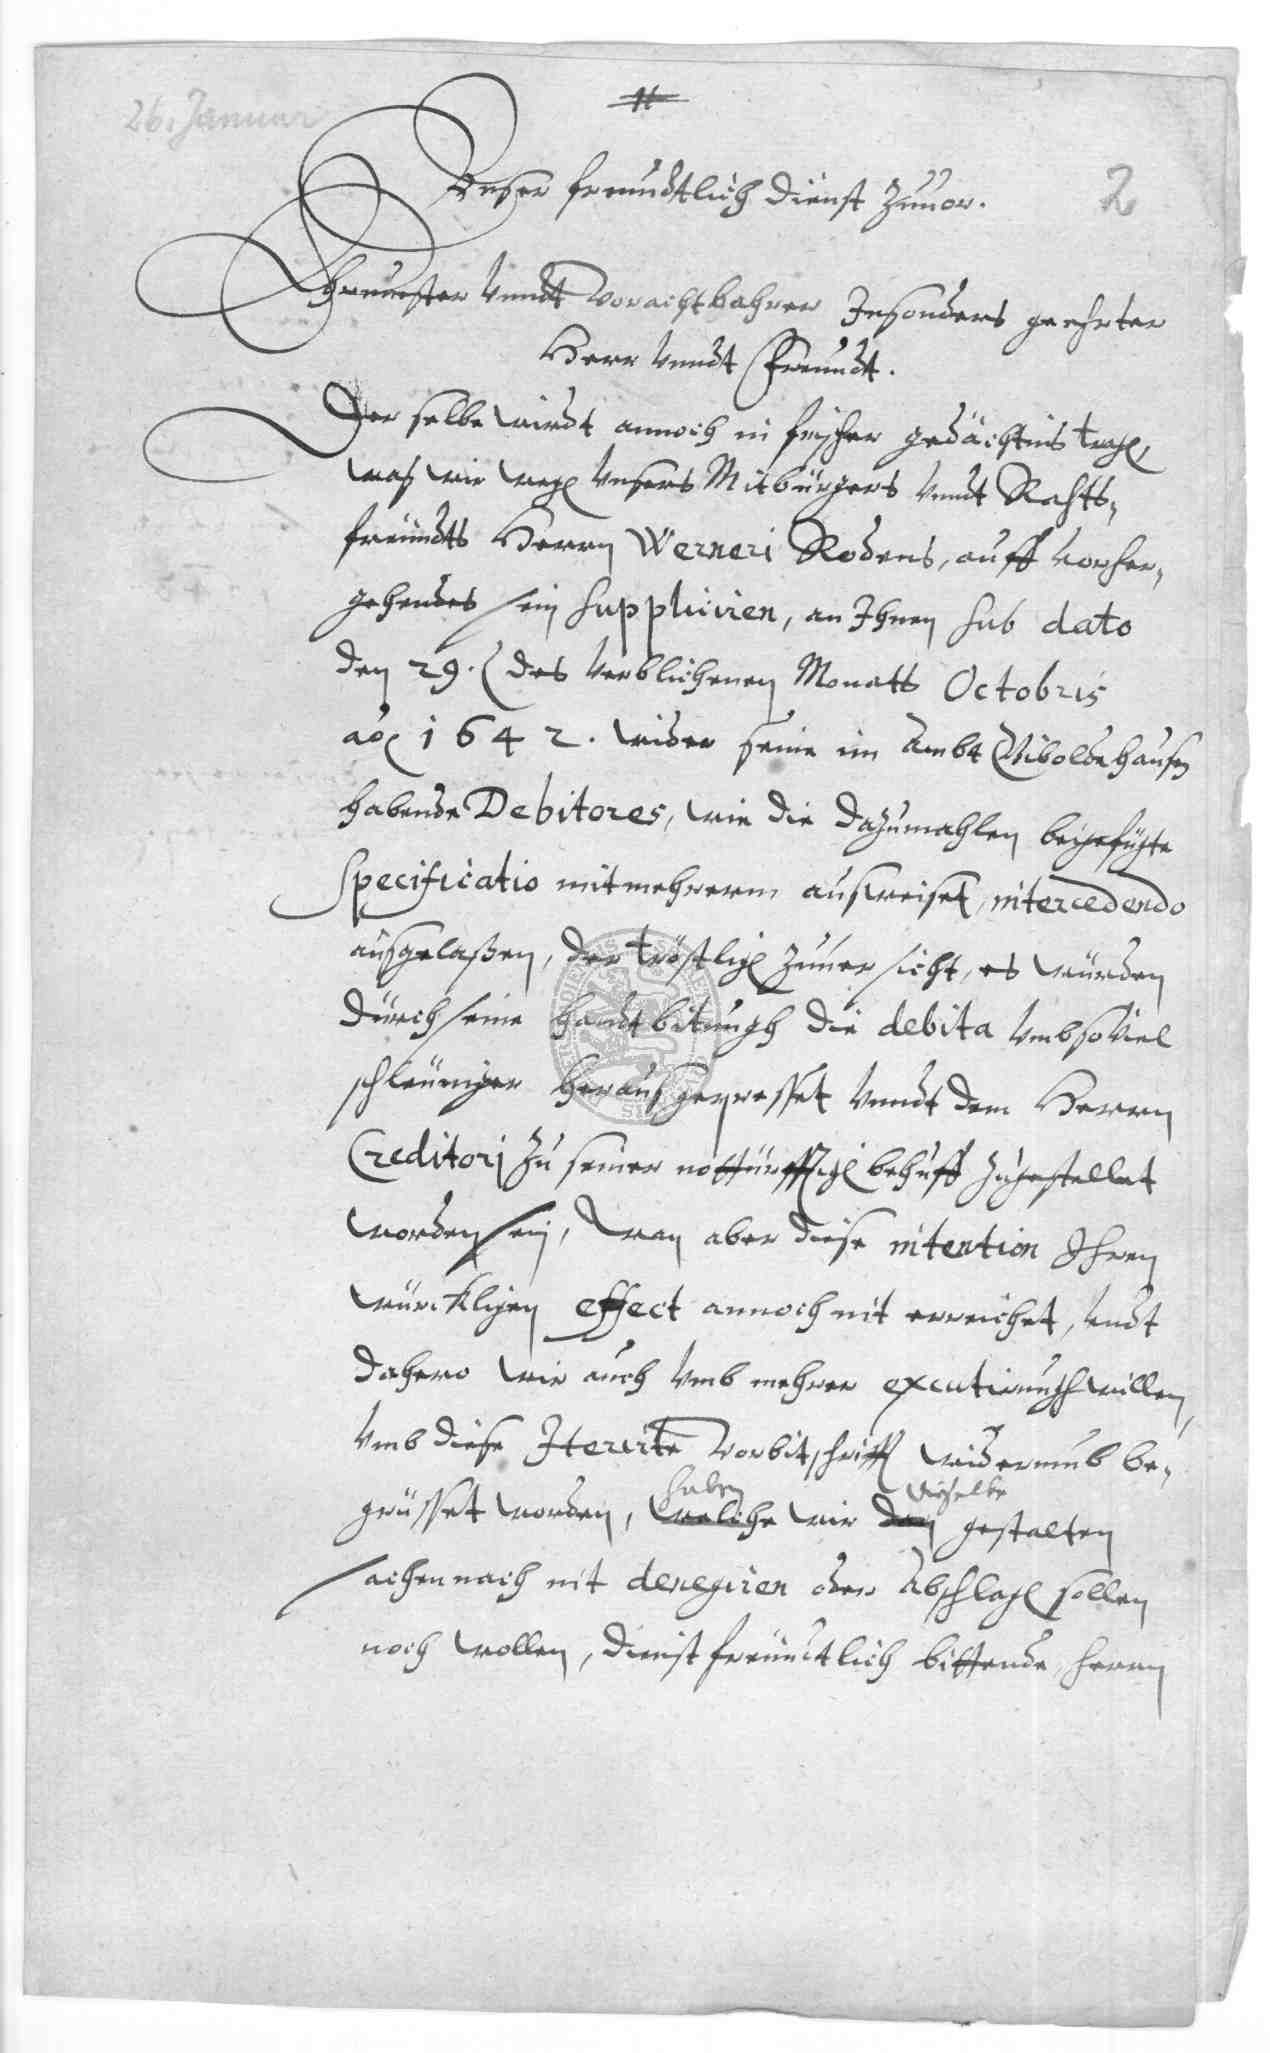 26. Januar
2
Unser freundtlich dienst Zuuor.
Ehrnuester Vnndt Vorachtbahrer Insonders geehrter
Herr Vnndt Freundt.
Der selbe wirdt annoch in frischer gedächtnis trag,
was wir weg Vnsers Mitbürgers Vnndt Rahts,
freündts Herrn Werneri Rodens, auff vorher,
gehendes sein suppliciren, an Ihnen sub dato
den 29. des Verblichenen Monatts Octobris
ao 1642. wider seine im Ambt Giboldehausen
habende Debitores, wie die dazumahlen beigefügte
Specificatio mit mehrerm ausweiset, intercedendo
ausgelaßen, der tröstlich Zuuersicht, es würden
durch seine handtbitungh die debita Vmb so Viel
schleüniger heraus gepresset Vnndt dem Herrn
Creditori Zu seiner nottürfftig behuff Zugestellet
worden sein, Wan aber diese intention Ihren
würcklichen effect annoch nit erreichet, Vndt
dahero wir auch Vmb mehrer willen,
Vmb diese Iterirte Vorbitschrifft widerumb be,
grüsset worden, haben welche wir dieselbe gestalten
sachen nach nit denegiren oder abschlag sollen
noch wollen, dienstfreündtlich bittende, herrn